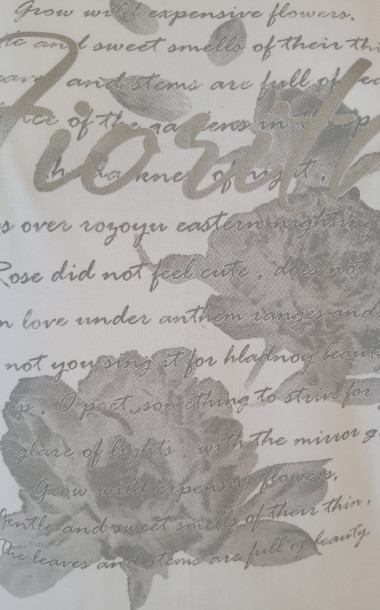 Grow wild expensive flowers.
and sweet smells of their thi
and stems are full of
of the gardens in
Fiorill
darkness of night.
s over rozoyu eastern nighting
Rose did not feel cute, does not
n love under anthem ranges and
not you sing it for hladnoy beauty
O poet, something to strive for
glare of lights, with the mirror g
Grow wild expensive flowers,
Gentle and sweet smells of their thin,
The leaves and stems are full of beauty.